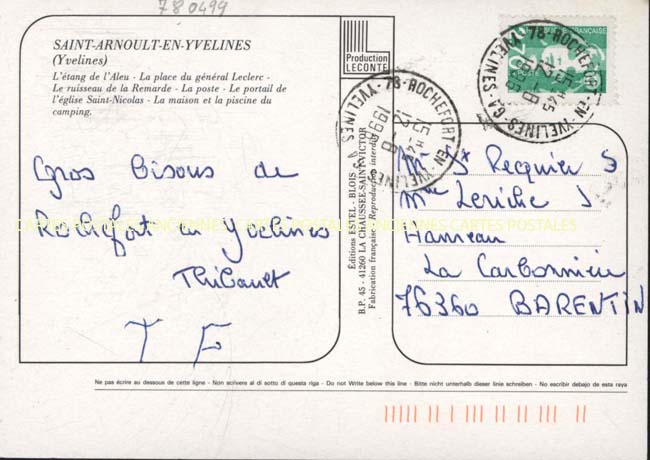 780499
SAINT-ARNOULT-EN-YVELINES
(Yvelines)
L'étang de l'Aleu - La place du général Leclerc -
Le ruisseau de la Remarde - La poste - Le portail de
l'église Saint-Nicolas - La maison et la piscine du
camping.
Production
LECONTE
Gros bisous de
Rochefort en Yvelines
Thibault
T F
Éditions ESTEL - BLOIS
B.P. 45 - 41260 LA CHAUSSÉE-SAINT-VICTOR
Fabrication française - Reproduction interdite
78-ROCHEFORT-EN-YVELINES
15 H 45
12 - 8
1998
YVELINES
78-ROCHEFORT-EN-YVELINES
FRANÇAISE
Mr Requier S
Mme Leriche J
Hameau
La Carbonnière
76360 BARENTIN
CARTES POSTALES ANCIENNES CARTES POSTALES ANCIENNES CARTES POSTALES
Ne pas écrire au dessous de cette ligne - Non scrivere al di sotto di questa riga - Do not Write below this line - Bitte nicht unterhalb dieser linie schreiben - No escribir debajo de esta raya